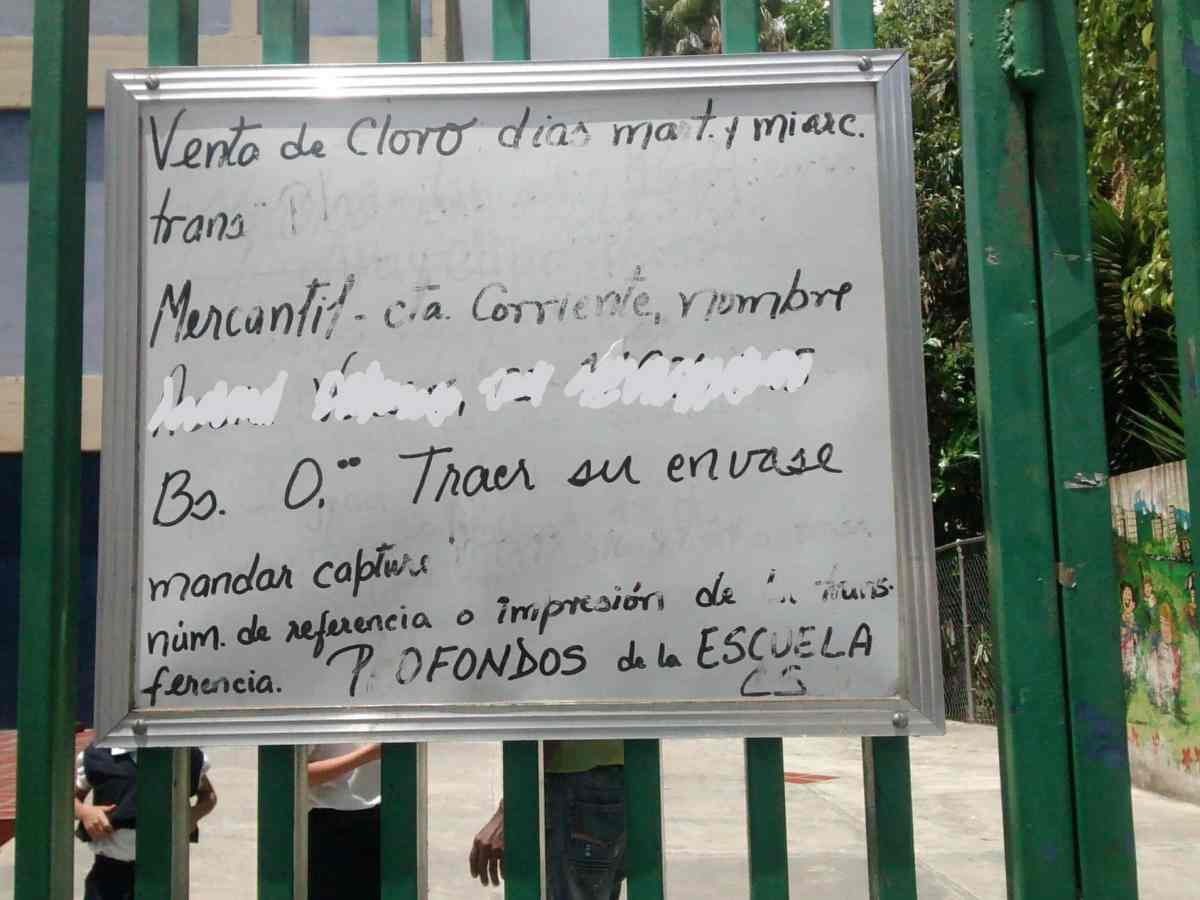 Venta de Cloro dias mart. y mierc.
trans
Mercantil - cta. Corriente, nombre
Bs. 0,°° Traer su envase
mandar capture
núm. de referencia o impresión de trans.
ferencia. P OFONDOS de la ESCUELA